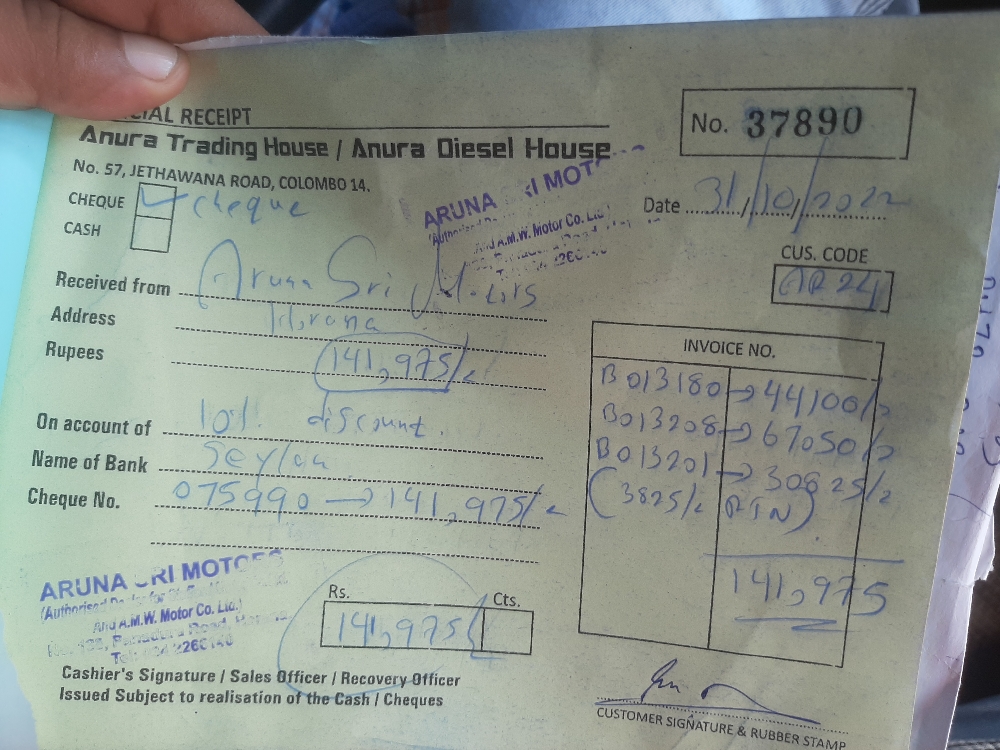 CIAL RECEIPT
No. 37890
Anura Trading House / Anura Diesel House
No. 57, JETHAWANA ROAD, COLOMBO 14.
CHEQUE cheque
CASH
ARUNA SRI MOT
And A.M.W. Motor Co. Ltd.
Date 31/10/2022
CUS. CODE
AR 24
Received from Aruna Sri Motors
Address Horana
Rupees 141,975/=
On account of 10% discount.
Name of Bank Seylan
Cheque No. 075990 → 141,975/=
INVOICE NO.
B013180 → 44100/=
B013208 → 67050/=
B013201 → 30825/=
(3825/= RTN)
141,975
ARUNA SRI MOTORS
And A.M.W. Motor Co. Ltd.
Rs. Cts.
141,975
Cashier's Signature / Sales Officer / Recovery Officer
Issued Subject to realisation of the Cash / Cheques
CUSTOMER SIGNATURE & RUBBER STAMP